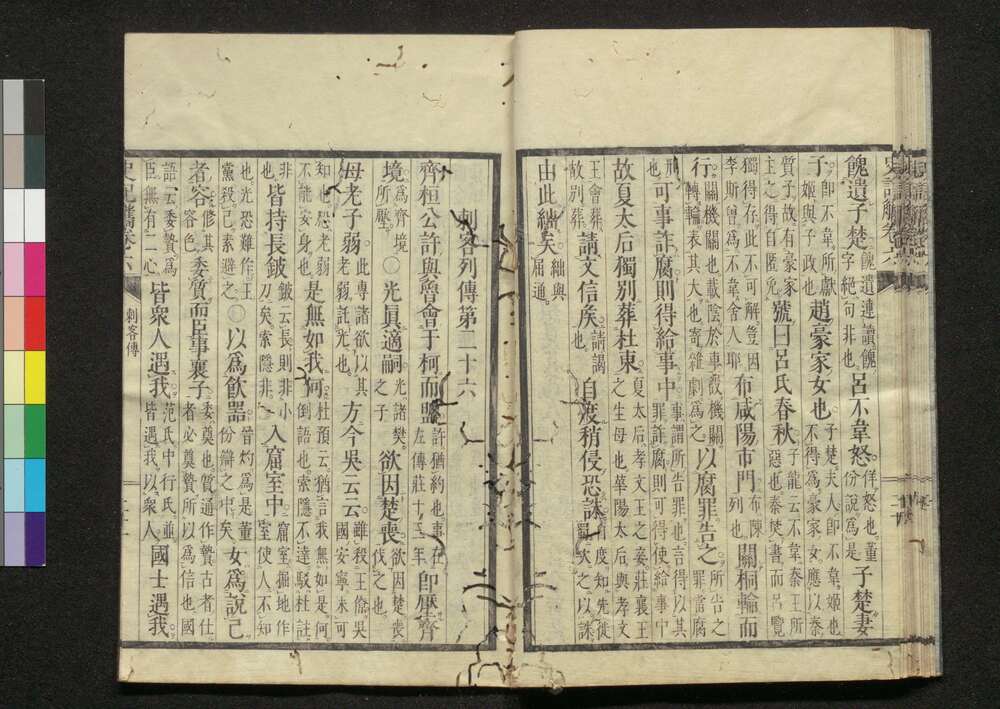 餽遺子楚 餽遺連讀餽字絕句非也 呂不韋怒 佯怒也董份說為是 子楚妻
子 即不韋所獻姬與子政也 趙豪家女也 子楚夫人即不韋姬也不得為豪家女應以秦
質子故有豪家主之得自匿免 號曰呂氏春秋 子龍云不韋秦王所惡也秦焚書而呂覽
獨得存此不可解豈因李斯曾為不韋舍人耶 布咸陽市門 布陳列也 關桐輪而
行 關機關也載陰於車設機關轉輪表其大也寄雜劇為之 以腐罪告之 所告之罪當腐
刑也 可事詐腐則得給事中 事謂所告罪也言得以其罪詐腐則可得使給事中
故夏太后獨別葬杜東 夏太后孝文王之妾莊襄王之生母也華陽太后與孝文
王會葬故別葬 請文信侯 請謁也 自度稍侵恐誅 自度知先徙蜀次之以誅
由此絀矣 絀與屈通
刺客列傳第二十六
齊桓公許與魯會于柯而盟 許猶約也事在左傳莊十三年 即壓齊
境 為齊境所壓 ○光真適嗣 光諸樊之子 欲因楚喪 欲因楚喪伐之也
母老子弱 此專諸欲以其老弱託光也 方今吳云云 雖殺王僚吳國安寧未可
知也恐老弱不能安身也 是無如我何 杜預云猶言我無如是何倒語也索隱不達駁杜註
非也 皆持長鈹 鈹云長則非小刀矣索隱非 入窟室中 窟室掘地作室使人不知
也光恐難作王黨殺己素避之 ○以為飲器 晉灼為是董份辯之中矣 女為說己
者容 修其容色 委質而臣事襄子 委奠也質通作贄古者仕者必奠贄所以為信也國
語云委贄為臣無有二心 皆眾人遇我 范氏中行氏並皆遇我以眾人 國士遇我
史記觿卷六 刺客傳